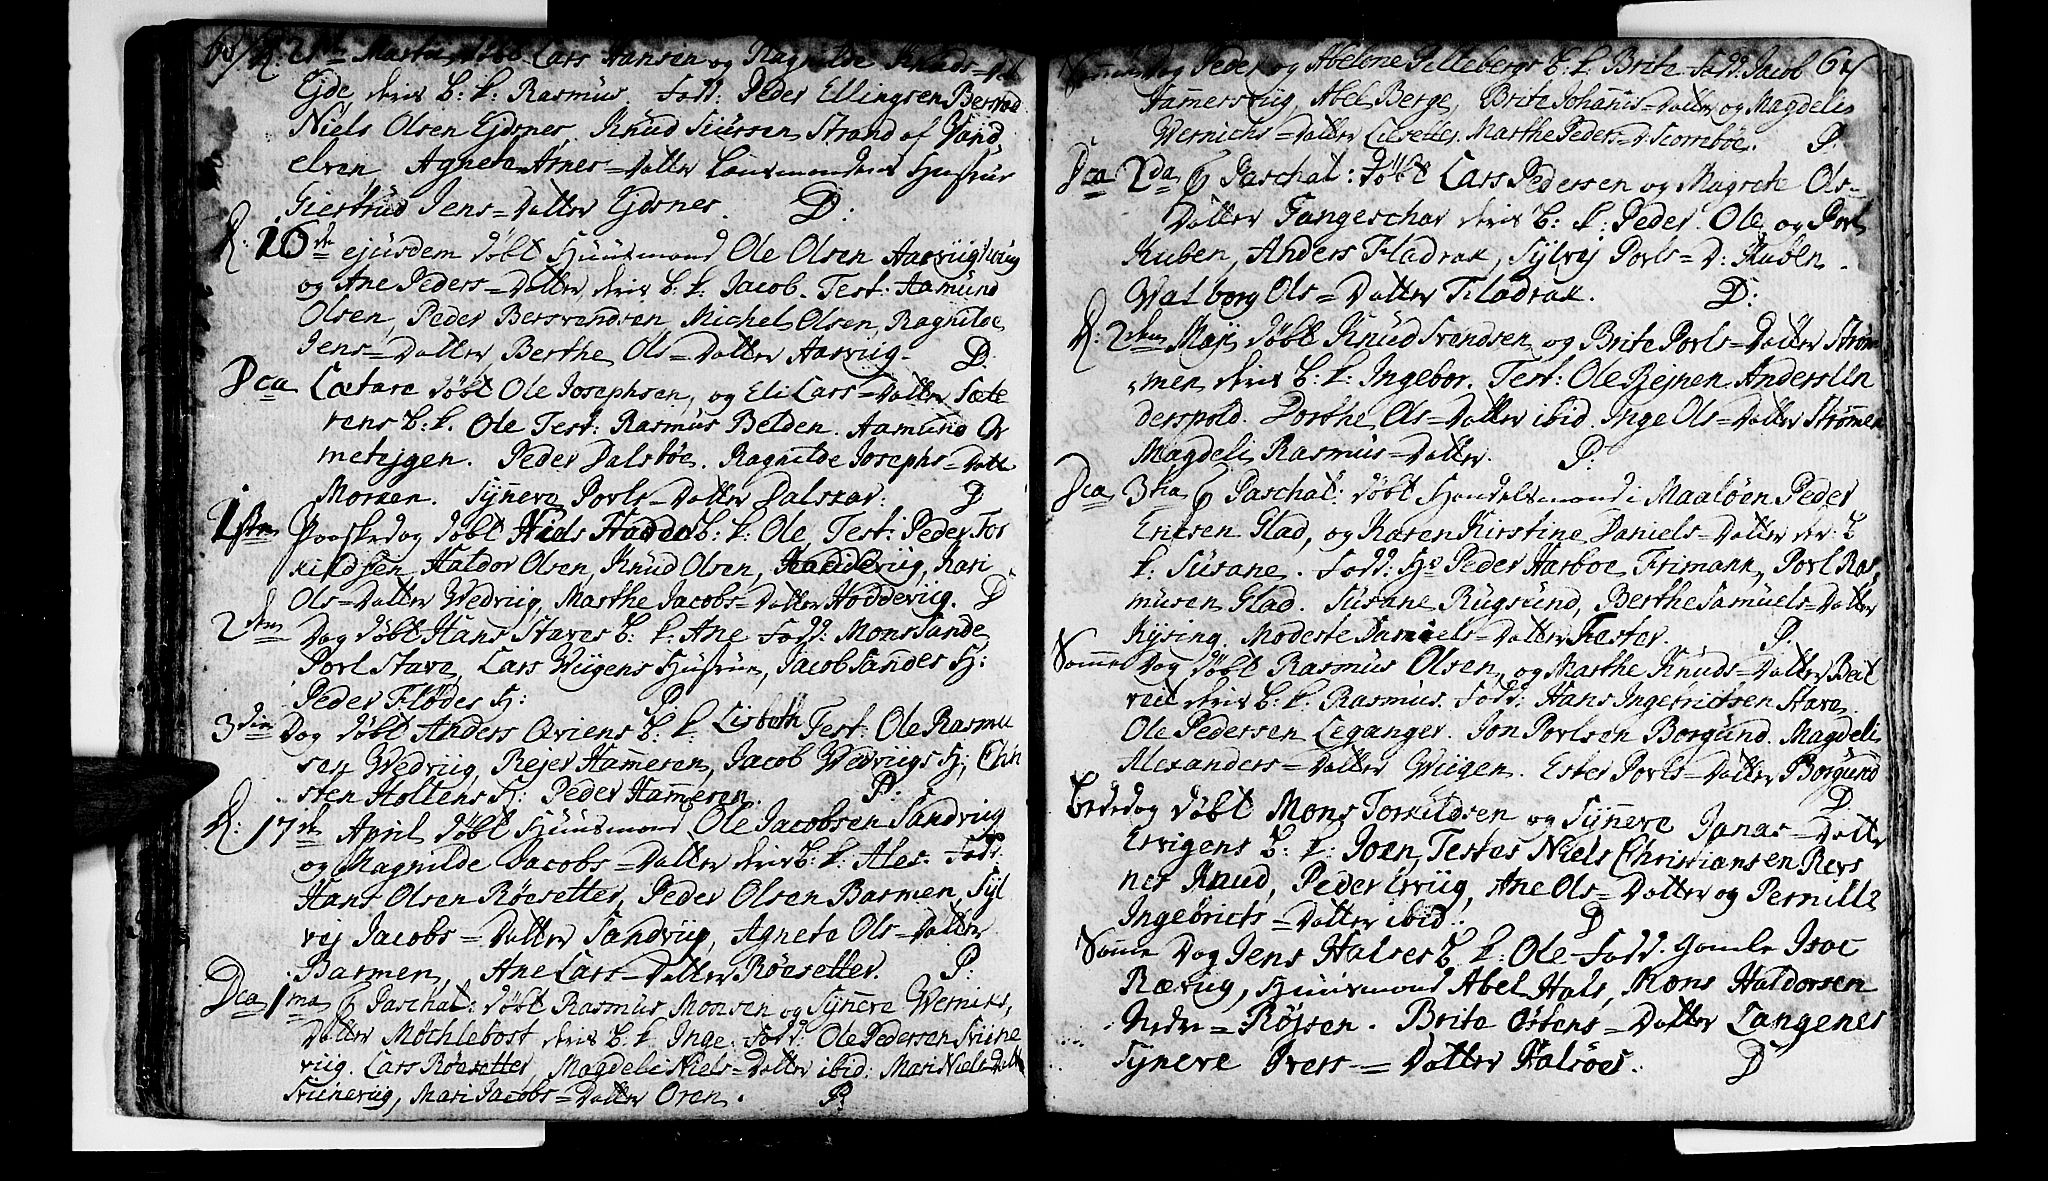 60/ d: 21de Martii døbt Lars Hansen og Ragnilde Knuds=Dat
Ejde deris B: k: Rasmus. Fadd: Peder Ellingsen Berstad
Niels Olsen Ejdsnes. Knud Siursen Strand af Vand
elven Agneta Arnes=Datter Lensmandens Hustrue
Giertrud Jens=Datter Ejdsnes. D:
d: 26de ejusdem døbt Huusmand Ole Olsen Aarviig
og Ane Peders=Datter deris B: k: Jacob. Test: Aamund
Olsen, Peder Bersvendsen, Michel Olsen, Ragnilde
Jens=Datter Berthe Ols=Datter Aarviig. D:
Dca Lætare døbt Ole Josephsen, og Eli Lars=Datter Sæte
rens B: k: Ole Test: Rasmus Belden. Aamund Or
metejgen. Peder Dalsbøe. Ragnilde Josephs=Datt
Morken. Synneve Povls=Datter Dalskar. D
1sten Paaskedag døbt Niels B: k: Ole, Test: Peder Tor
kildsen Haldor Olsen, Knud Olsen, Hoddeviig, Kari
Ols=Datter Wedviig, Marthe Jacobs=Datter Hoddeviig. D
2den Dag døbt Hans Staves B: k: Ane Fadd: Mons Sande
Povl Stave, Lars Wiigens Hustrue, Jacob Sandes H:
Peder Flødes H: P:
3die Dag døbt Anders Qviens B: k: Lisbeth Test: Ole Rasmu
sen Wedviig, Rejer Hameren, Jacob Wedviigs H; Chri
sten Holtens H: Peder Hameren. P:
d: 17de April døbt Huusmand Ole Jacobsen Sandviig
og Magnilde Jacobs=Datter deris B: k: Ales. Fadd:
Hans Olsen Røesetter, Peder Olsen Barmen, Syl
vej Jacobs=Datter Sandviig, Agneta Ols=Datter
Barmen, Ane Lars=Datter Røesetter. P:
Dca 1ma p Paschal: døbt Rasmus Monsen og Synneve Werniks,
Datter Møchlebost deris B: k: Inge. Fadd: Ole Pedersen Sviine
viig. Lars Røesetter, Magdeli Niels=Datter ibid: Mari Niels Datter
Sviineviig, Mari Jacobs=Datter Oren. P:
Samme Dag Peder og Abelone Pillebergs B: k: Brite Fadd: Jacob 61
Hamersviig, Abel Berge, Brite Johannis=Datter og Magdeli
Wernichs=Datter Lilsetter. Marthe Peders=D: Skorrebøe. P.
Dca 2da p Paschal: døbt Lars Pedersen og Magrete Ols=
Datter Tangeschar deris B: k: Peder. Ole og Povl
Kuben, Anders Fladrak, Sylvej Povls=D: Kuben.
Walborg Ols=Datter Fladrak. D:
d: 2den Maji døbt Knud Svendsen og Brite Povls=Datter Strøm
men deris B: k: Ingebor. Test: Ole Rejnen Anders Un
derspold. Dorthe Ols=Datter ibid. Inge Ols=Datter Strømen
Magdeli Rasmus=Datter. P:
Dca 3tia p Paschal: døbt Handelsmand i Maaløen Peder
Eriksen Glad, og Karen Kirstine Daniels=Datter der: B
k: Susane. Fadd: Hr Peder Harboe Frimann, Povl Ras
musen Glad. Susane Rugsund, Berthe Samuels=Datter
Kysing. Modeste Daniels=Datter Fester. P.
Samme Dag døbt Rasmus Olsen, og Marthe Knuds=Datter Beit
veit deris B: k: Rasmus. Fadd: Hans Ingebrictsen Stave.
Ole Pedersen Leganger. Jon Povlsen Borgund. Magdeli
Alexanders=Datter Wiigen. Ester Povls=Datter Borgund
D.
Bededag døbt Mons Torkildsen og Synneve Jonas=Datter
Ervigens B: k: Joen, Testes Niels Christiansen Revs
nes Knud, Peder Erviig, Ane Ols=Datter og Pernille
Ingebricts=Datter ibid. D
Samme Dag Jens Halses B: k: Ole Fadd: Gamle Isac
Ræviig, Huusmand Abel Hals, Mons Haldorsen
Nedre=Røjsen. Brite Østens=Datter Langenes
Synneve Ivers=Datter Halsøes. D